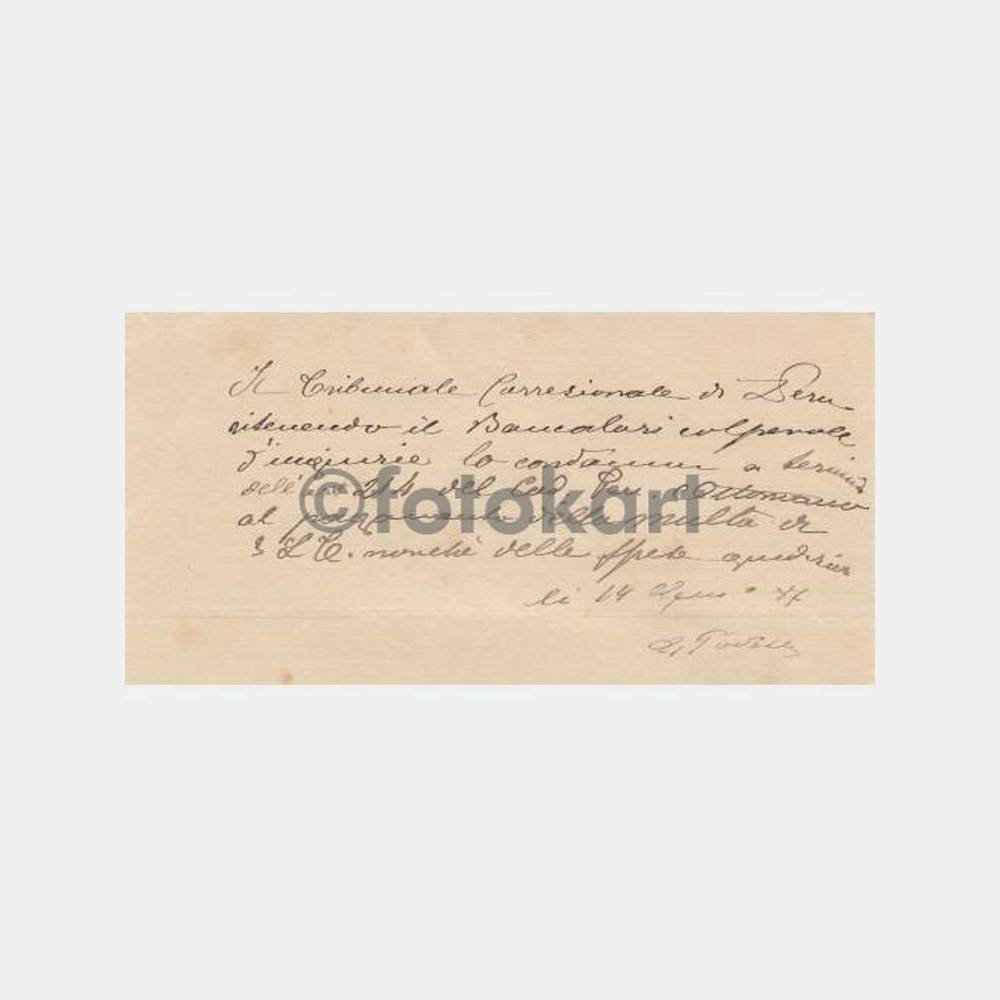 Il Tribunale Corresionale di Pera
ritenendo il Bancalari colpevole
d'ingiurie lo condanna a termini
dell' 214 del Cod Pen Ottomano
al pagamento della multa di
3 L T. nonchè delle spese
li 14
©fotokart